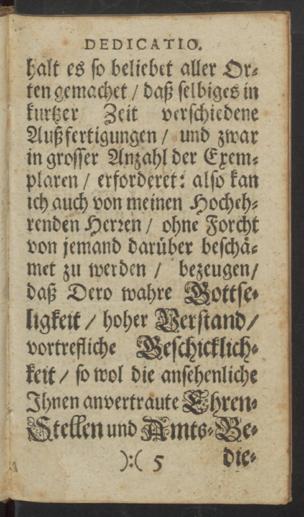 DEDICATIO.
halt es so beliebet aller Or-
ten gemachet / daß selbiges in
kurtzer Zeit verschiedene
Außfertigungen / und zwar
in grosser Anzahl der Exem-
plaren / erforderet: also kan
ich auch von meinen Hocheh-
renden Herren / ohne Forcht
von jemand darüber beschä-
met zu werden / bezeugen /
daß Dero wahre Gottse-
ligkeit / hoher Verstand /
vortrefliche Geschicklich-
keit / so wol die ansehenliche
Ihnen anvertraute Ehren-
Stellen und Amts-Be-
):( 5 die-